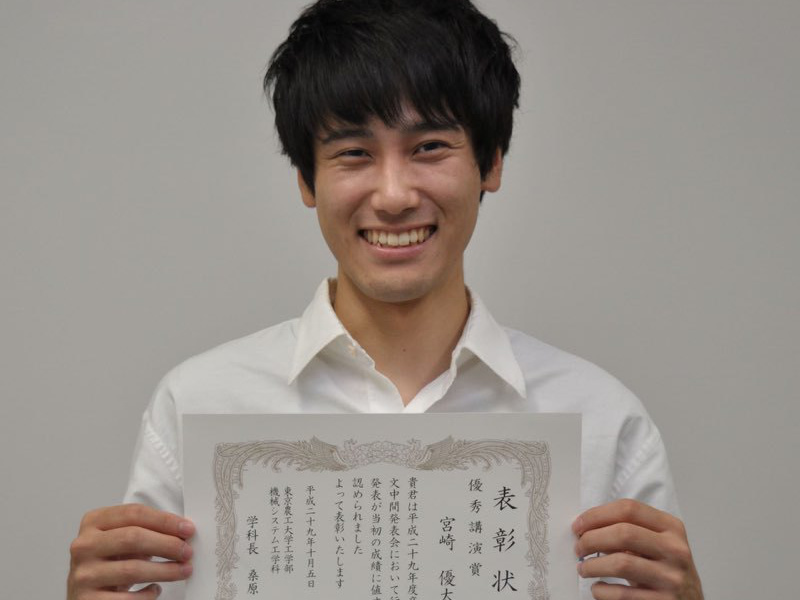 表彰状
優秀講演賞
宮崎 優太
貴君は平成二十九年度卒
文中間発表会において行
発表が当初の成績に値す
認められました
よって表彰いたします
平成二十九年十月五日
東京農工大学工学部
機械システム工学科
学科長 桑原